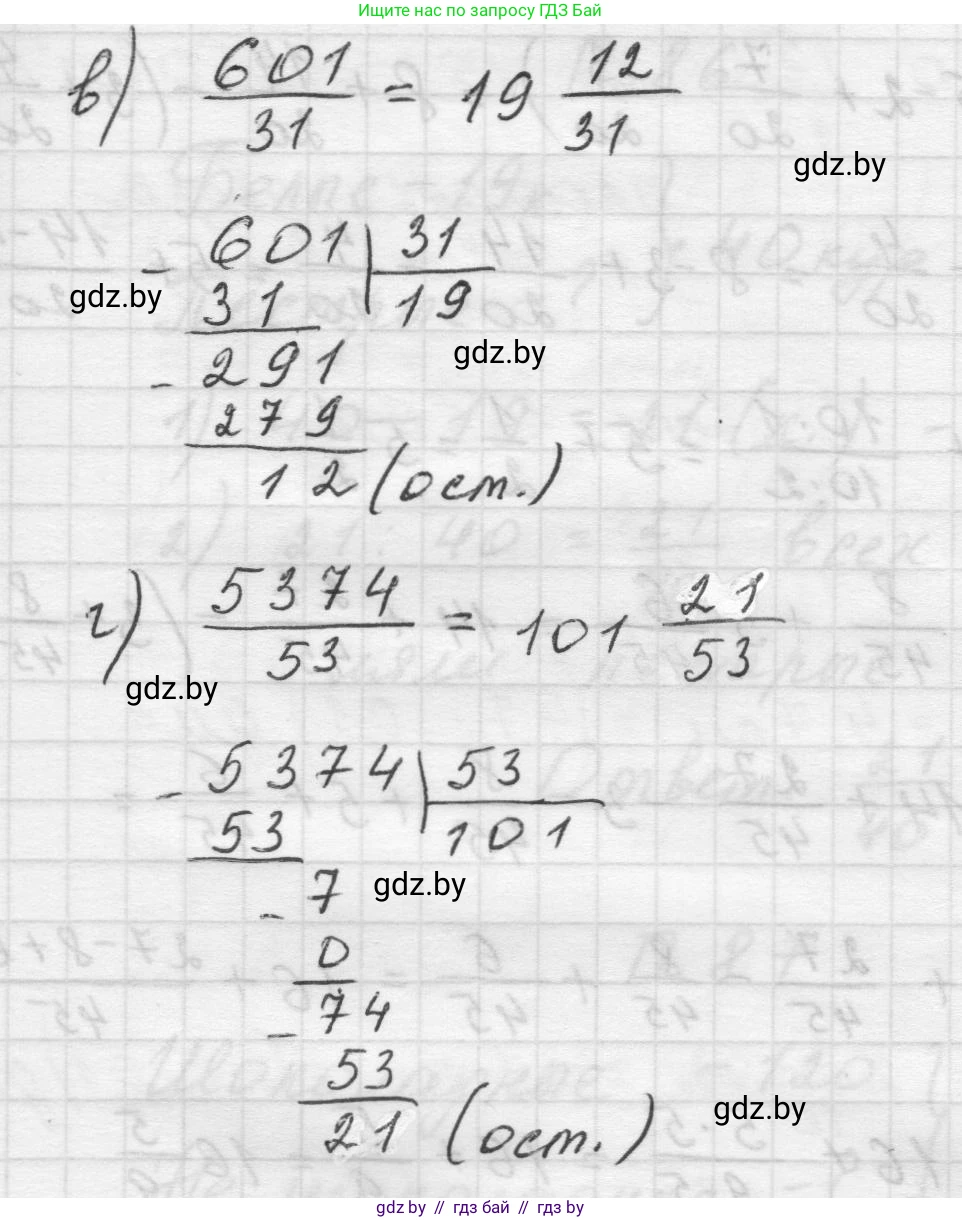 Ищите нас по запросу ГДЗ Бай
в) 601/31 = 19 12/31
gdz.by
- 601 | 31
gdz.by
31 19
gdz.by
- 291
279
12 (ост.)
г) 5374/53 = 101 21/53
gdz.by
- 5374 | 53
53 101
- 7 gdz.by
0
- 74
53
gdz.by
21 (ост.)
gdz by // гдз бай // гдз by